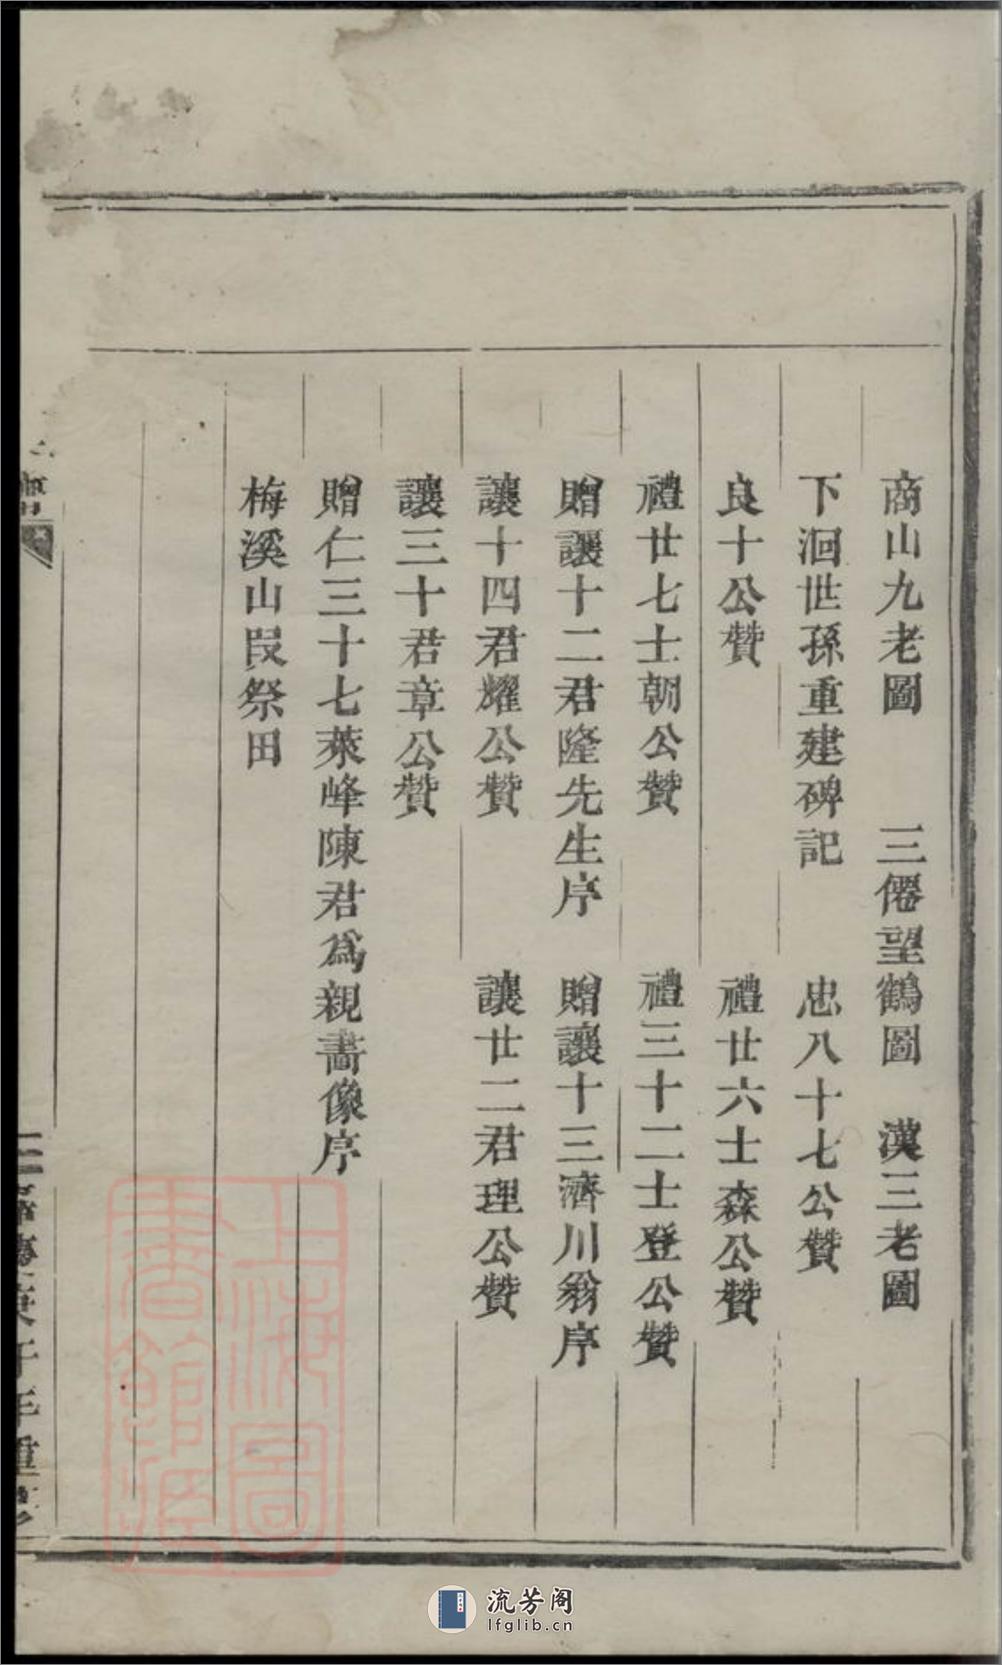 商山九老圖　三僊望鶴圖　漢三老圖
下洄世孫重建碑記　忠八十七公贊
良十公贊　禮廿六士森公贊
禮廿七士朝公贊　禮三十二士登公贊
贈讓十二君隆先生序　贈讓十三濟川翁序
讓十四君耀公贊　讓廿二君理公贊
讓三十君章公贊
贈仁三十七萊峰陳君爲親畵像序
梅溪山叚祭田
庚子年重修
上海圖書館藏
流芳阁
lfglib.cn